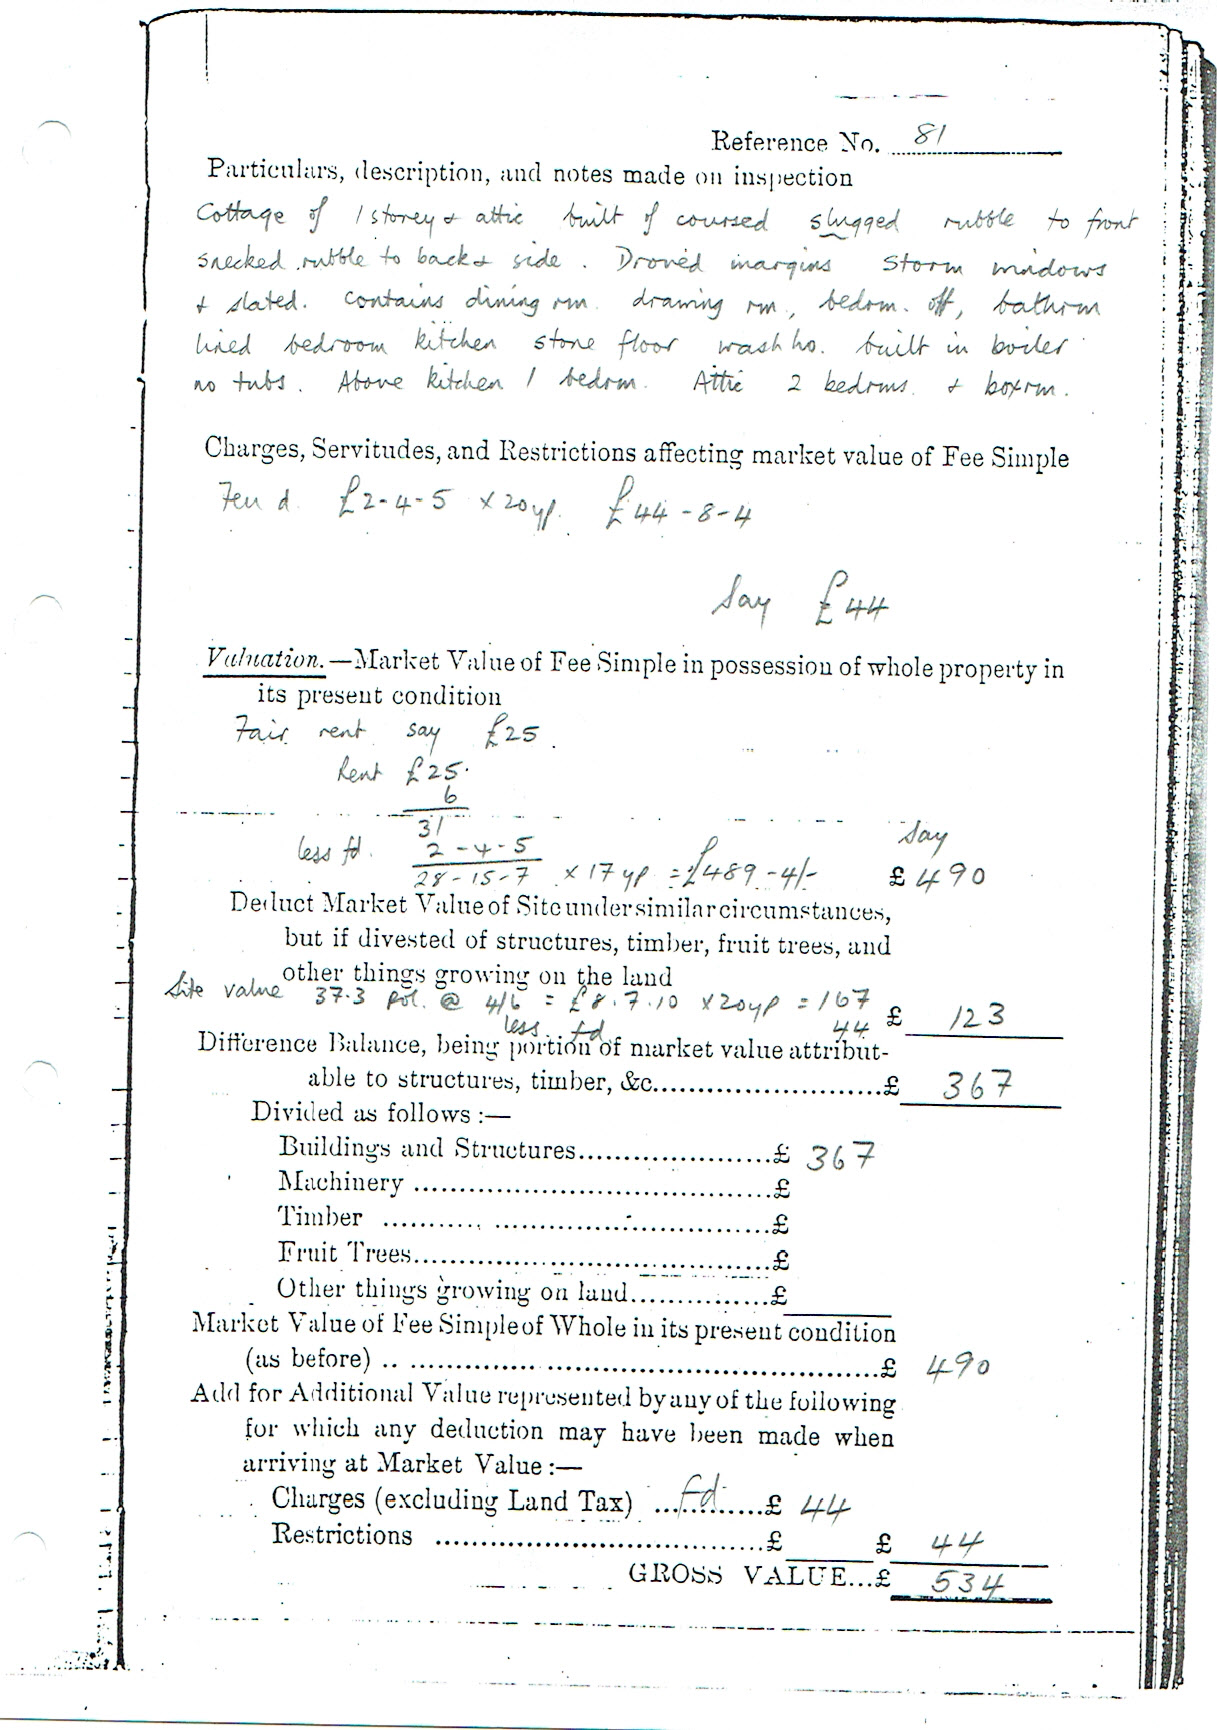 Reference No. 81
Particulars, description, and notes made on inspection
Cottage of 1 storey & attic built of coursed slugged rubble to front
snecked rubble to back & side. Droved margins storm windows
& slated. contains dining rm. drawing rm, bedrm. off, bathrm
lined bedroom kitchen stone floor wash ho. built in boiler
no tubs. Above kitchen 1 bedrm. Attic 2 bedrms. & boxrm.
Charges, Servitudes, and Restrictions affecting market value of Fee Simple
Feu d. £2-4-5 x 20yp. £44-8-4
Say £44
Valuation.—Market Value of Fee Simple in possession of whole property in
its present condition
Fair rent say £25.
Rent £25.
6
31
less fd. 2-4-5
Say
28-15-7 x 17 yp = £489-4/- £ 490
Deduct Market Value of Site under similar circumstances,
but if divested of structures, timber, fruit trees, and
other things growing on the land
Site value 37.3 pol. @ 4/6 = £8.7.10 x 20yp = 167
less fd. 44 £ 123
Difference Balance, being portion of market value attribut-
able to structures, timber, &c..............................£ 367
Divided as follows :—
Buildings and Structures........................£ 367
Machinery ............................................£
Timber ............................................£
Fruit Trees............................................£
Other things growing on land..................£
Market Value of Fee Simple of Whole in its present condition
(as before) ............................................£ 490
Add for Additional Value represented by any of the following
for which any deduction may have been made when
arriving at Market Value :—
Charges (excluding Land Tax) ....fd.....£ 44
Restrictions ........................................£ £ 44
GROSS VALUE...£ 534